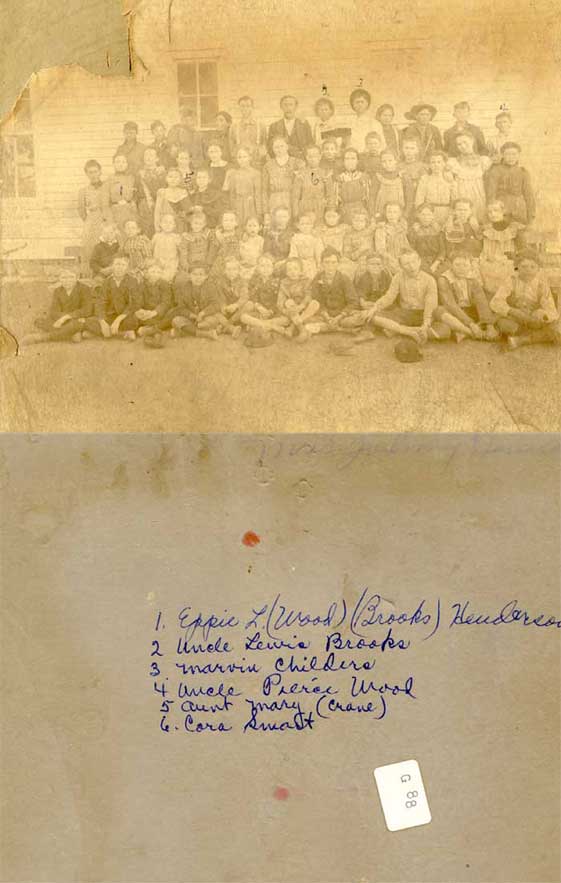 Mrs.
1. Eppie L. (Wood) (Brooks) Henderson
2 Uncle Lewis Brooks
3. Marvin Childers
4 Uncle Pierce Wood
5 Aunt Mary (Crane)
6. Cora Smart
G 88